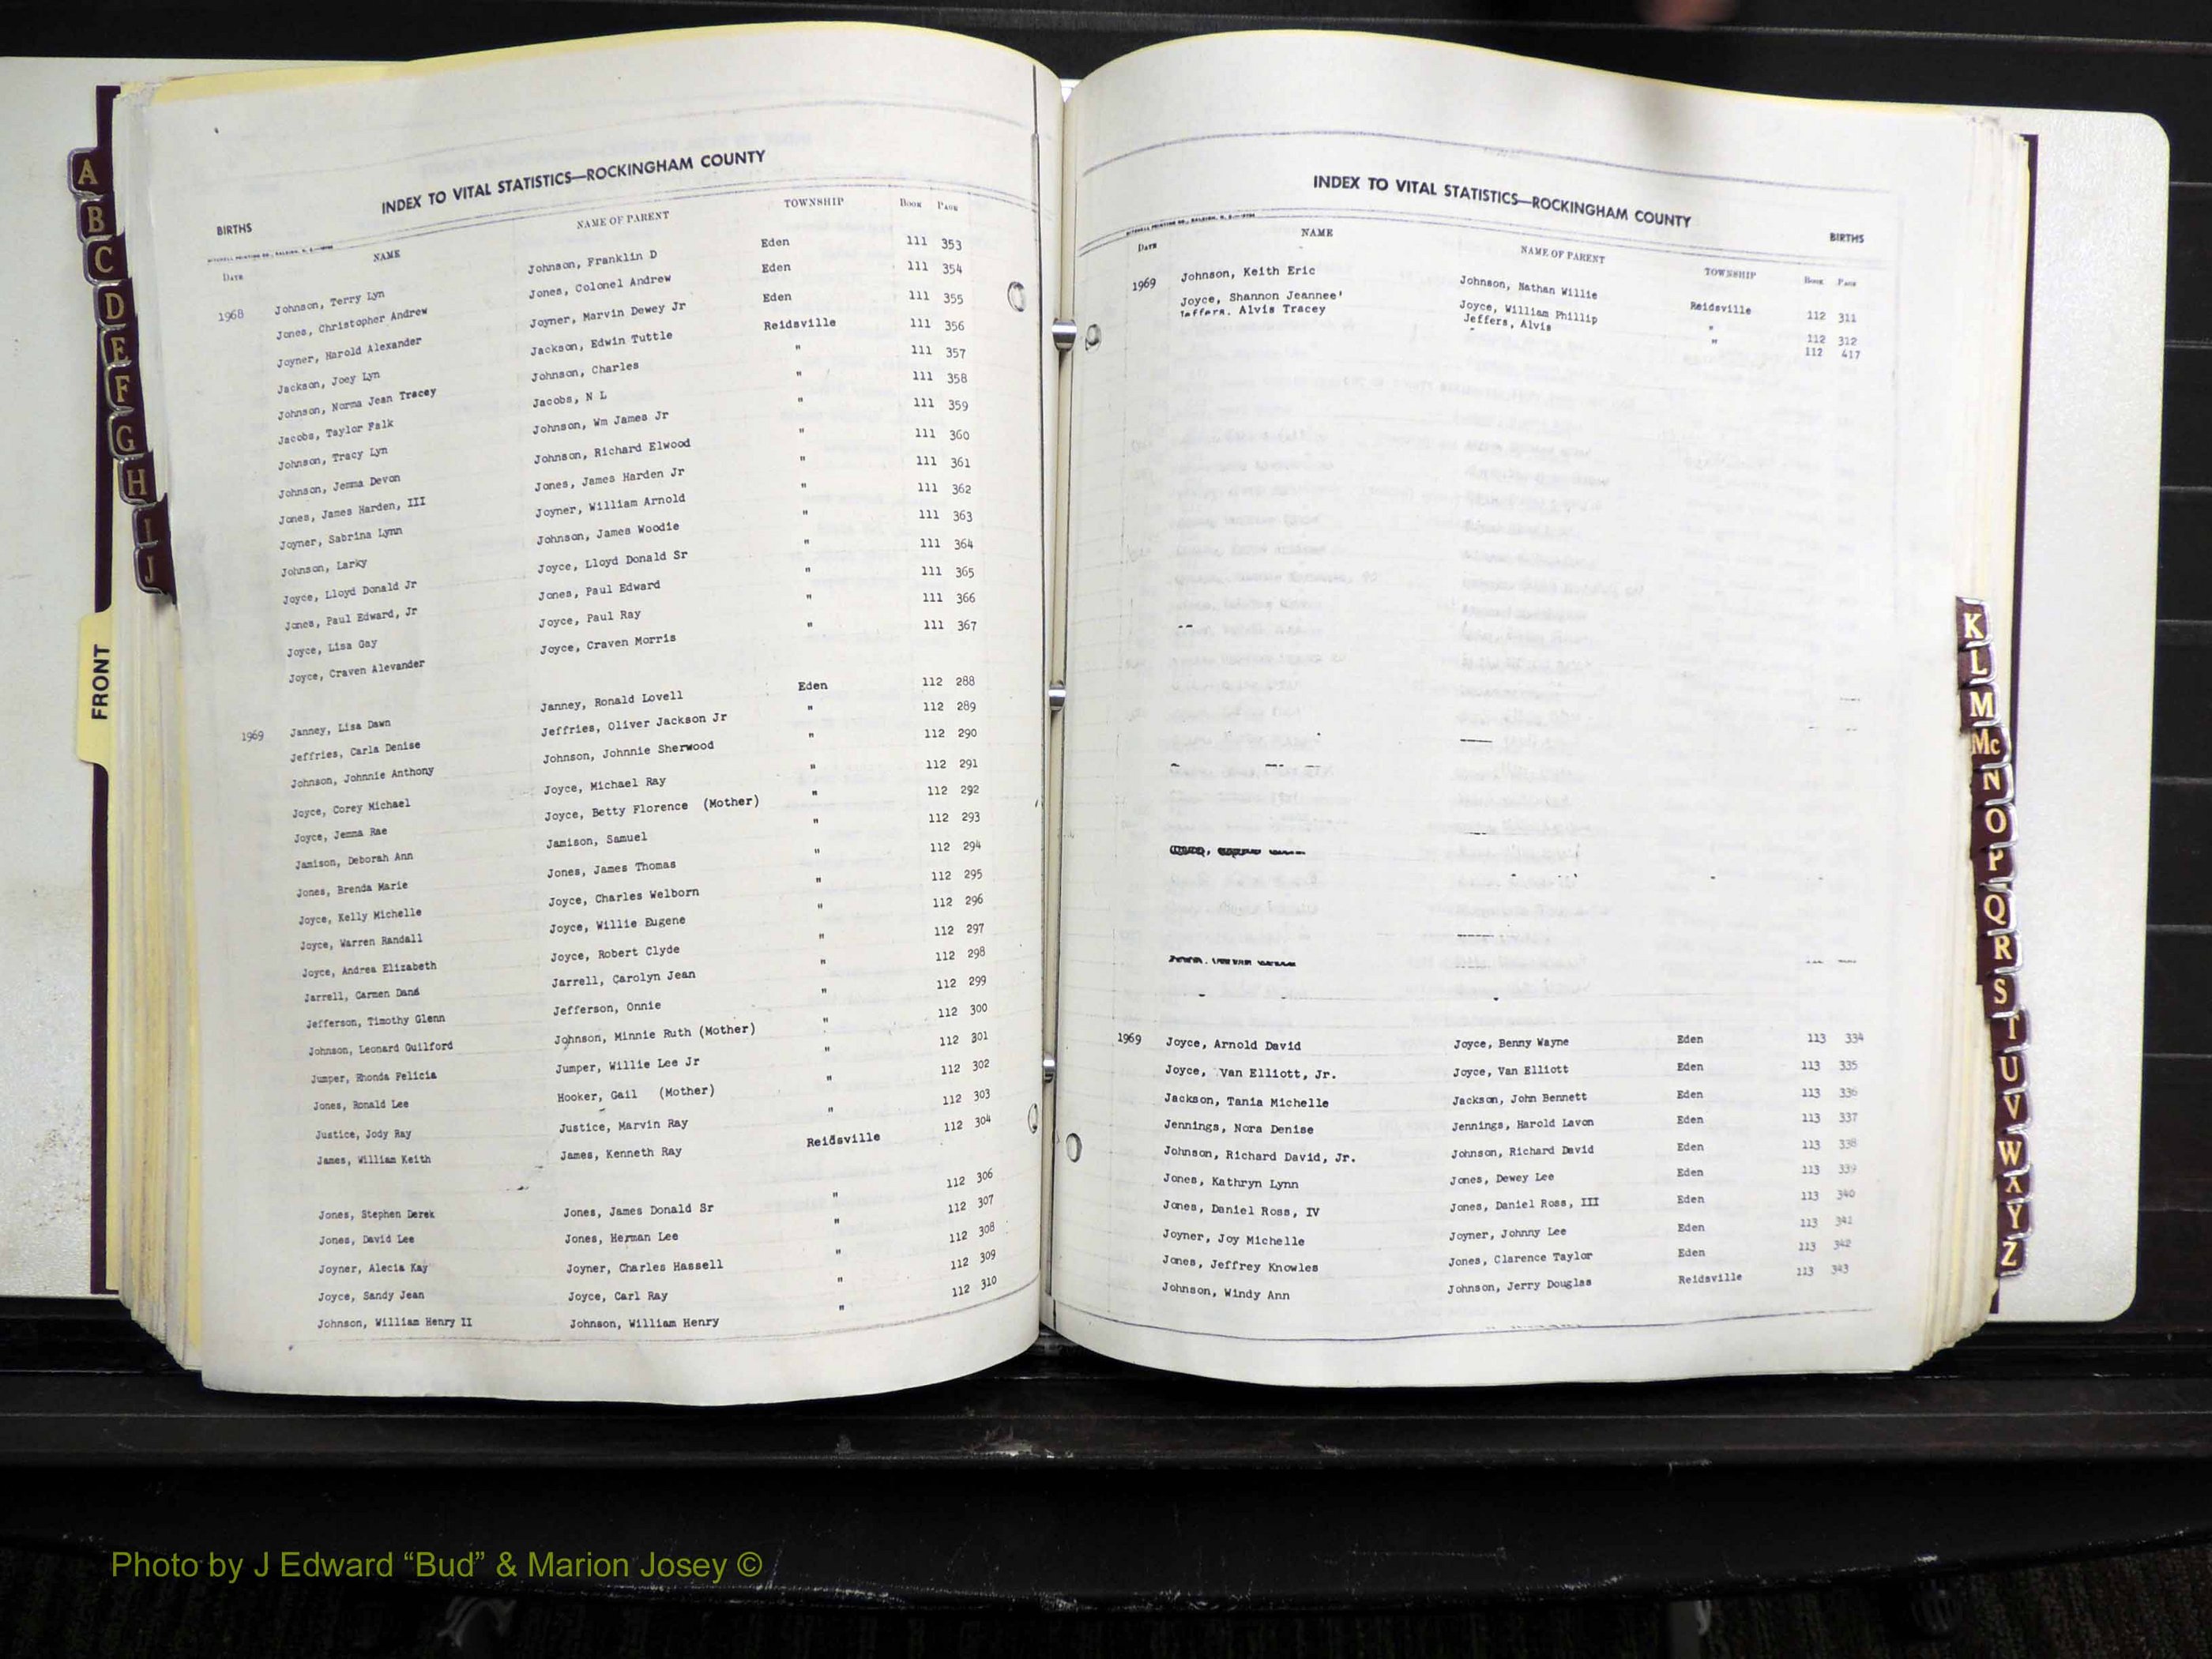 INDEX TO VITAL STATISTICS—ROCKINGHAM COUNTY
BIRTHS
DATE NAME NAME OF PARENT TOWNSHIP BOOK PAGE
1968 Johnson, Terry Lyn Johnson, Franklin D Eden 111 353
Jones, Christopher Andrew Jones, Colonel Andrew Eden 111 354
Joyner, Harold Alexander Joyner, Marvin Dewey Jr Eden 111 355
Jackson, Joey Lyn Jackson, Edwin Tuttle Reidsville 111 356
Johnson, Norma Jean Tracey Johnson, Charles " 111 357
Jacobs, Taylor Falk Jacobs, N L " 111 358
Johnson, Tracy Lyn Johnson, Wm James Jr " 111 359
Johnson, Jemma Devon Johnson, Richard Elwood " 111 360
Jones, James Harden, III Jones, James Harden Jr " 111 361
Joyner, Sabrina Lynn Joyner, William Arnold " 111 362
Johnson, Larky Johnson, James Woodie " 111 363
Joyce, Lloyd Donald Jr Joyce, Lloyd Donald Sr " 111 364
Jones, Paul Edward, Jr Jones, Paul Edward " 111 365
Joyce, Lisa Gay Joyce, Paul Ray " 111 366
Joyce, Craven Alevander Joyce, Craven Morris " 111 367
1969 Janney, Lisa Dawn Janney, Ronald Lovell Eden 112 288
Jeffries, Carla Denise Jeffries, Oliver Jackson Jr " 112 289
Johnson, Johnnie Anthony Johnson, Johnnie Sherwood " 112 290
Joyce, Corey Michael Joyce, Michael Ray " 112 291
Joyce, Jemma Rae Joyce, Betty Florence (Mother) " 112 292
Jamison, Deborah Ann Jamison, Samuel " 112 293
Jones, Brenda Marie Jones, James Thomas " 112 294
Joyce, Kelly Michelle Joyce, Charles Welborn " 112 295
Joyce, Warren Randall Joyce, Willie Eugene " 112 296
Joyce, Andrea Elizabeth Joyce, Robert Clyde " 112 297
Jarrell, Carmen Jarrell, Carolyn Jean " 112 298
Jefferson, Timothy Glenn Jefferson, Onnie " 112 299
Johnson, Leonard Guilford Johnson, Minnie Ruth (Mother) " 112 300
Jumper, Rhonda Felicia Jumper, Willie Lee Jr " 112 301
Jones, Ronald Lee Hooker, Gail (Mother) " 112 302
Justice, Jody Ray Justice, Marvin Ray " 112 303
James, William Keith James, Kenneth Ray Reidsville 112 304
Jones, Stephen Derek Jones, James Donald Sr " 112 306
Jones, David Lee Jones, Herman Lee " 112 307
Joyner, Alecia Kay Joyner, Charles Hassell " 112 308
Joyce, Sandy Jean Joyce, Carl Ray " 112 309
Johnson, William Henry II Johnson, William Henry " 112 310
INDEX TO VITAL STATISTICS—ROCKINGHAM COUNTY
BIRTHS
DATE NAME NAME OF PARENT TOWNSHIP BOOK PAGE
1969 Johnson, Keith Eric Johnson, Nathan Willie Reidsville 112 311
Joyce, Shannon Jeannee' Joyce, William Phillip " 112 312
Jeffers, Alvis Tracey Jeffers, Alvis " 112 417
1969 Joyce, Arnold David Joyce, Benny Wayne Eden 113 334
Joyce, Van Elliott, Jr. Joyce, Van Elliott Eden 113 335
Jackson, Tania Michelle Jackson, John Bennett Eden 113 336
Jennings, Nora Denise Jennings, Harold Lavon Eden 113 337
Johnson, Richard David, Jr. Johnson, Richard David Eden 113 338
Jones, Kathryn Lynn Jones, Dewey Lee Eden 113 339
Jones, Daniel Ross, IV Jones, Daniel Ross, III Eden 113 340
Joyner, Joy Michelle Joyner, Johnny Lee Eden 113 341
Jones, Jeffrey Knowles Jones, Clarence Taylor Eden 113 342
Johnson, Windy Ann Johnson, Jerry Douglas Reidsville 113 343
A
B
C
D
E
F
G
H
I
J
FRONT
K
L
M
Mc
N
O
P
Q
R
S
T
U
V
W
X
Y
Z
Photo by J Edward “Bud” & Marion Josey ©